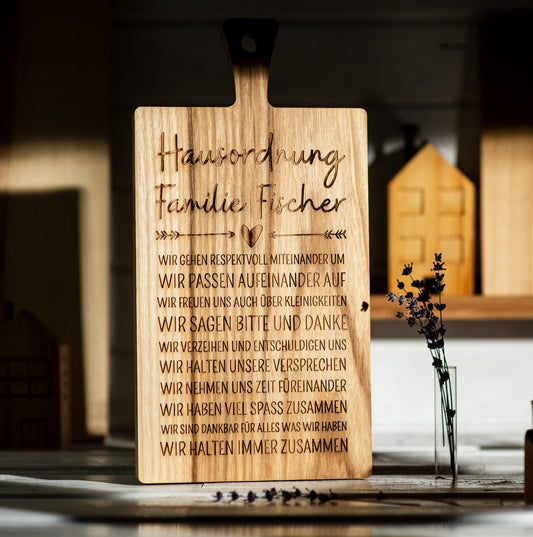 Hausordnung
Familie Fischer
WIR GEHEN RESPEKTVOLL MITEINANDER UM
WIR PASSEN AUFEINANDER AUF
WIR FREUEN UNS AUCH ÜBER KLEINIGKEITEN
WIR SAGEN BITTE UND DANKE
WIR VERZEIHEN UND ENTSCHULDIGEN UNS
WIR HALTEN UNSERE VERSPRECHEN
WIR NEHMEN UNS ZEIT FÜREINANDER
WIR HABEN VIEL SPASS ZUSAMMEN
WIR SIND DANKBAR FÜR ALLES WAS WIR HABEN
WIR HALTEN IMMER ZUSAMMEN